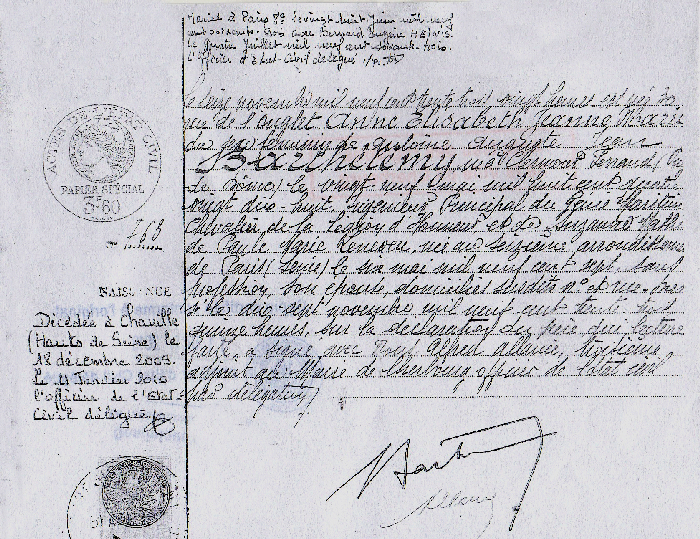 Mariée à Paris 7e le vingt huit Juin mil neuf
cent soixante-trois avec Bernard Eugène
le quinze Juillet mil neuf cent soixante-trois.
L'Officier d'Etat-Civil délégué
ACTES DE L'ETAT CIVIL
PAPIER SPÉCIAL
3F60
263
NAISSANCE
Décédée à Chaville
(Hauts de Seine) le
18 décembre 2003.
Le 11 Janvier 2010
l'officier de l'Etat
Civil délégué
Le seize novembre mil neuf cent trente trois, vingt heures est née
rue de l'onglet Anne Elisabeth Jeanne Marie
du Antoine Auguste Jean
Barthélemy né à Clermont Ferrand, Puy
de Dôme, le vingt neuf mai mil huit cent quatre
vingt dix-huit, ingénieur principal du Génie Maritime
Chevalier de la Légion d'Honneur et de Suzanne
de Paule Marie née au seizième arrondissement
de Paris, Seine, le six mai mil neuf cent sept, sans
profession, son épouse, domiciliés susdits
le dix sept novembre mil neuf cent trente trois
heures, sur la déclaration du père qui, lecture
faite, a signé avec Alfred troisième
adjoint au Maire de Cherbourg officier de l'état civil
par délégation